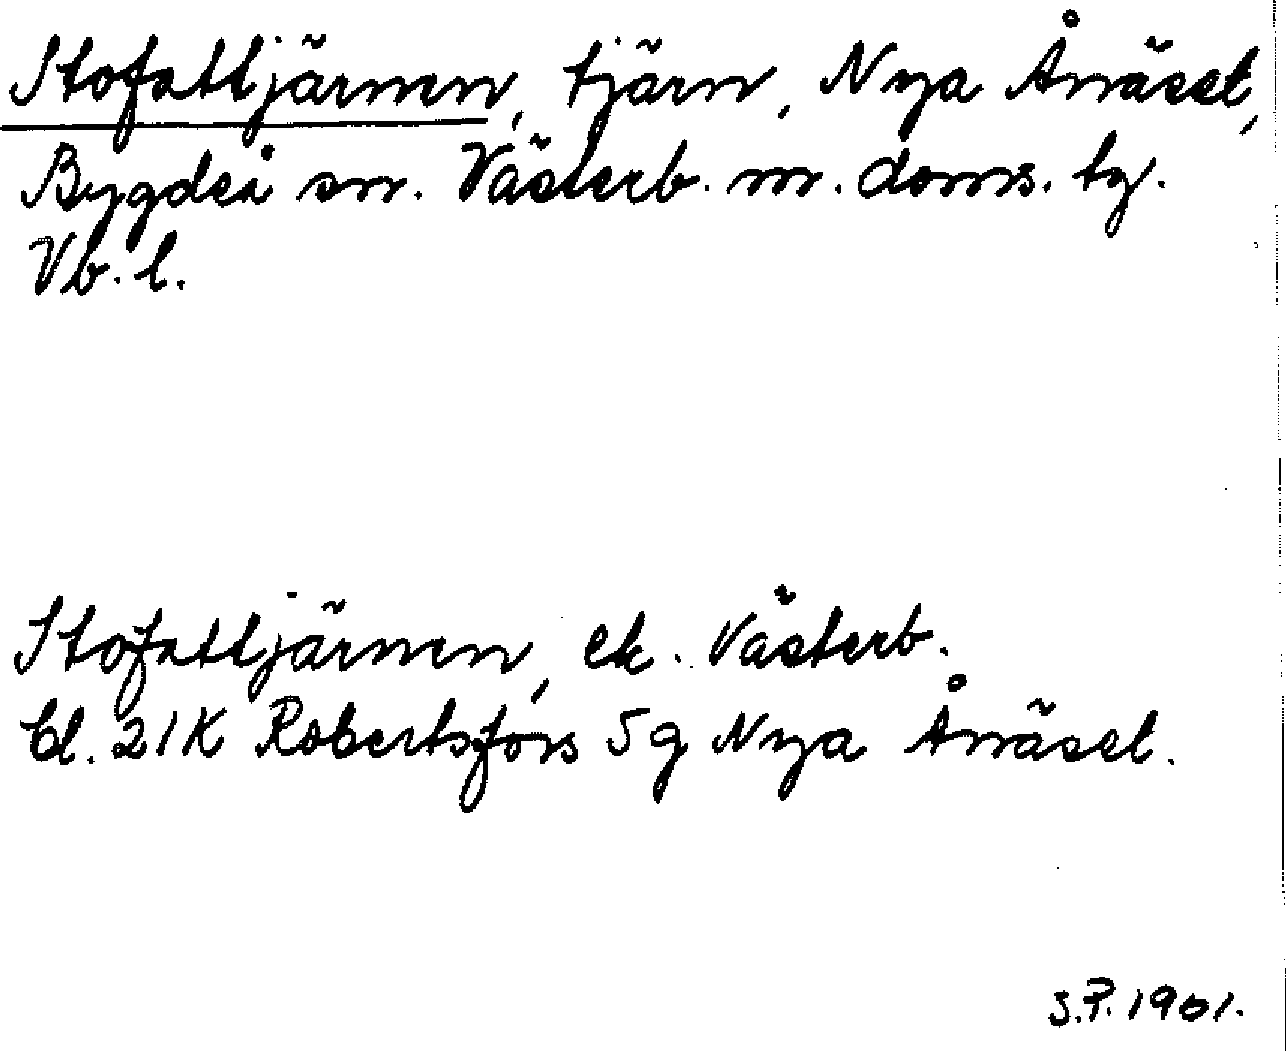 Stofattjärnen, tjärn, Nya Ånäset,
Bygdeå sn. Västerb. m. doms. tg.
Vb. l.
Stofattjärnen, ek. Västerb.
bl. 21K Robertsfors 5g Nya Ånäset.
S.P. 1961.